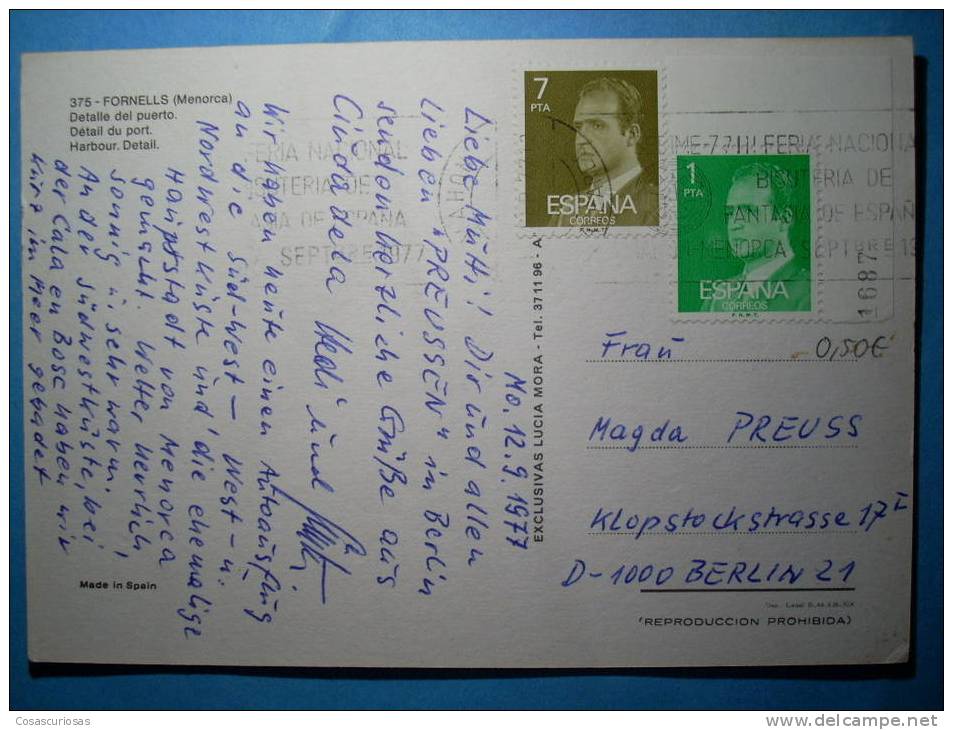 375 - FORNELLS (Menorca)
Detalle del puerto.
Détail du port.
Harbour. Detail.
Made in Spain
EXCLUSIVAS LUCIA MORA - Tel. 37 11 96 - A
Mo. 12.9.1977
Liebe Mütti! Dir und allen
lieben "PREUSSEN" in Berlin
senden herzliche Grüße aus
Ciudadela Hedi und
Wir haben heute einen Autoausflug
an die Süd-West- West- u.
Nordwestküste und die ehemalige
Hauptstadt von Menorca
gemacht. Wetter herrlich
sonnig u. sehr warm!
An der Südwestküste, bei
der Cala en Bosc haben wir
kurz im Meer gebadet
7
PTA
ESPAÑA
CORREOS
F.N.M.T.
1
PTA
ESPAÑA
CORREOS
F.N.M.T.
FERIA NACIONAL
BISUTERIA DE
FANTASIA DE ESPAÑA
SEPTBRE 1977
AHON
ME-77 III FERIA NACIONA
BISUTERIA DE
FANTASIA DE ESPAÑ
MENORCA SEPTBRE 19
1687
0,50€
Frau
Magda PREUSS
Klopstockstrasse 17 I
D-1000 BERLIN 21
(REPRODUCCION PROHIBIDA)
Cosascuriosas
www.delcampe.net